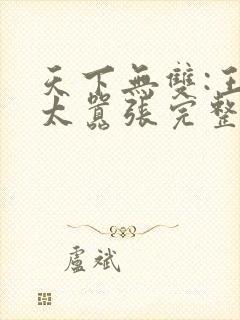 天下無雙:王
太囂張完整
盧斌